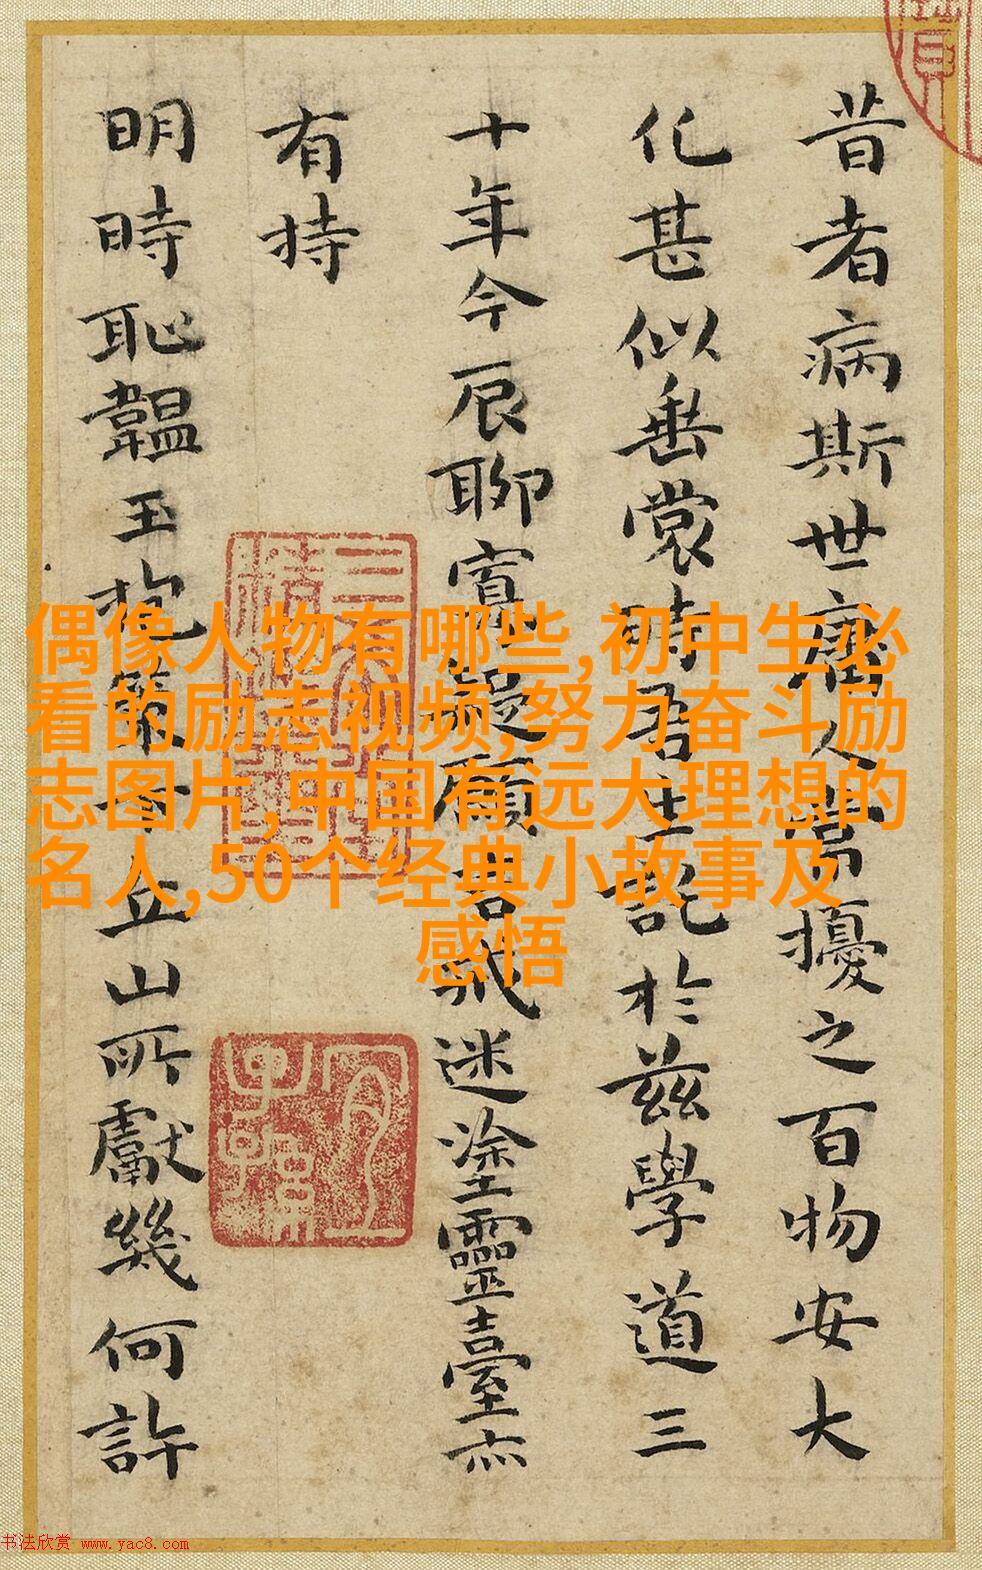 昔者病斯世庸人常擾之百物安大
化甚似垂裳時君王託於茲學道三
十年今辰聊寬疑願言戒迷塗靈臺亦
有持
明時恥韞玉抱策十丘山所獻幾何許
偶像人物有哪些,初中生必
看的励志视频,努力奋斗励
志图片,中国有远大理想的
名人,50个经典小故事及
感悟
书法欣赏 www.yac8.com